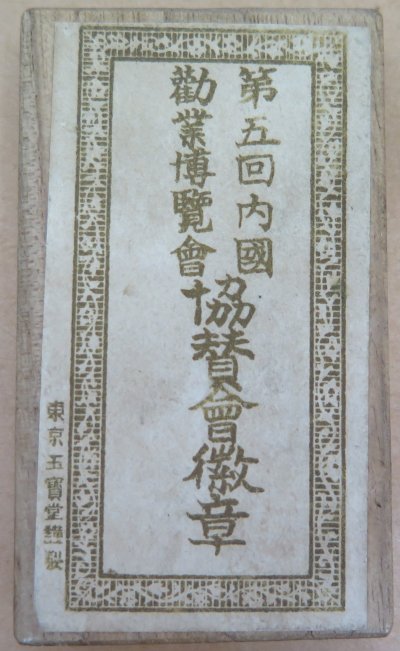 第五回内國
勸業博覽會
協賛會徽章
東京玉寶堂謹製